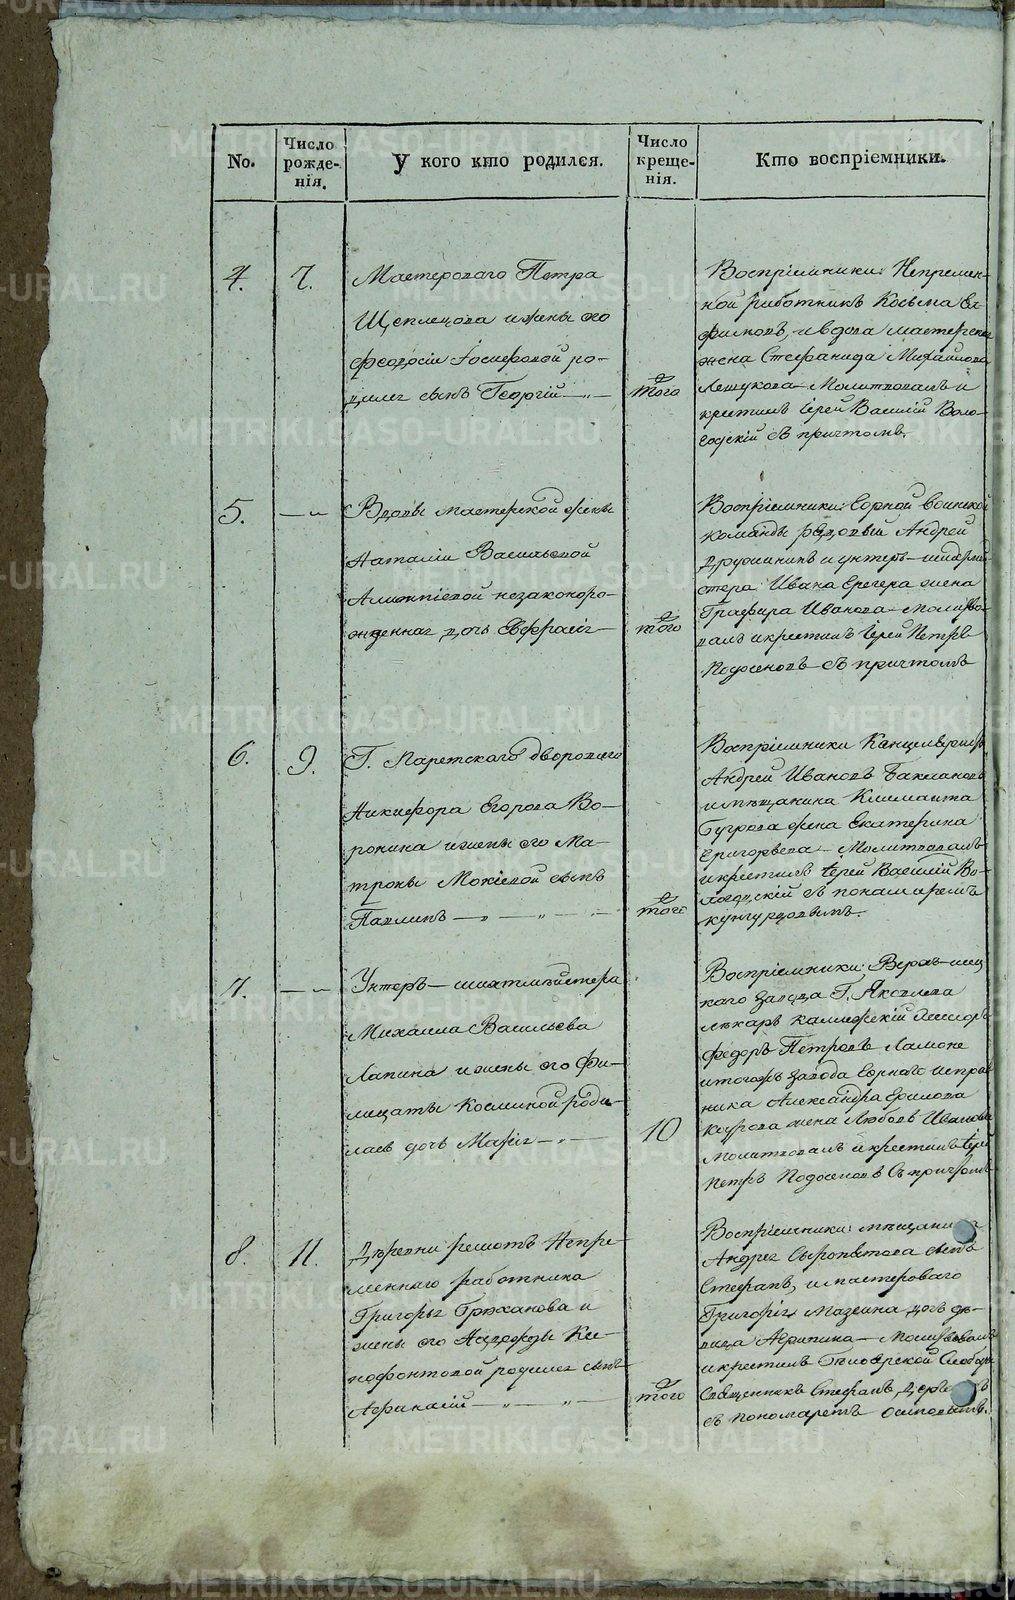 No.
Число рожде-нія.
У кого кто родился.
Число креще-нія.
Кто воспріемники.
4.
7.
Мастероваго Петра
Щеплецова и жены его
Феодосіи Іосифовой ро-
дился сынъ Георгій
того
Воспріемники: Непремен-
ной работникъ Косьма
и вдова мастерская
жена Стефанида Михайлова
Молитвовалъ и
крестилъ Іерей Василій Воло-
годскій съ причтомъ.
5.
Вдовы мастерской жены
Наталіи Васильевой
незаконоро-
жденная дочь Евфразія
того
Воспріемники: Горной воинской
команды рядовый Андрей
Дружининъ и унтеръ-шихтмей-
стера Ивана жена
Глафира Иванова молитво-
валъ и крестилъ Іерей Петръ
Подосеновъ съ причтомъ
6.
9.
Г. двороваго
Никифора Егорова Во-
ронина и жены его Ма-
троны Мокіевой сынъ
Павлинъ
того
Воспріемники Канцеляристъ
Андрей Ивановъ Бакмановъ
и мѣщанина Климента
Бугрова жена Екатерина
Григорьева Молитвовалъ
и крестилъ Іерей Василій Во-
логодскій съ понамаремъ
Кунгуровымъ.
7.
Унтеръ-шихтмейстера
Михаила Васильева
Лапина и жены его Фи-
лицаты Козминой роди-
лась дочь Марія
10
Воспріемники: Верхъ-исец
каго завода Г. Яковлева
лѣкарь
Федоръ Петровъ
и того жъ завода Горнаго исправ
ника Александра Ермолова
жена Любовь Иванова
молитвовалъ и крестилъ Іерей
Петръ Подосеновъ съ причтомъ
8.
11.
Деревни решотъ Непре-
меннаго работника
Григорья Брюханова и
жены его Надежды Ки-
нофонтовой родился сынъ
Афанасій
того
Воспріемники: мѣщанина
Андрея Сыропятова сынъ
Стефанъ, и мастероваго
Григорія Мазеина дочь дѣ-
вица Агрипина Молитвовалъ
и крестилъ Бѣлоярской Слободы
Священникъ Стефанъ
съ пономаремъ Осиповымъ.
METRIKI.GASO-URAL.RU